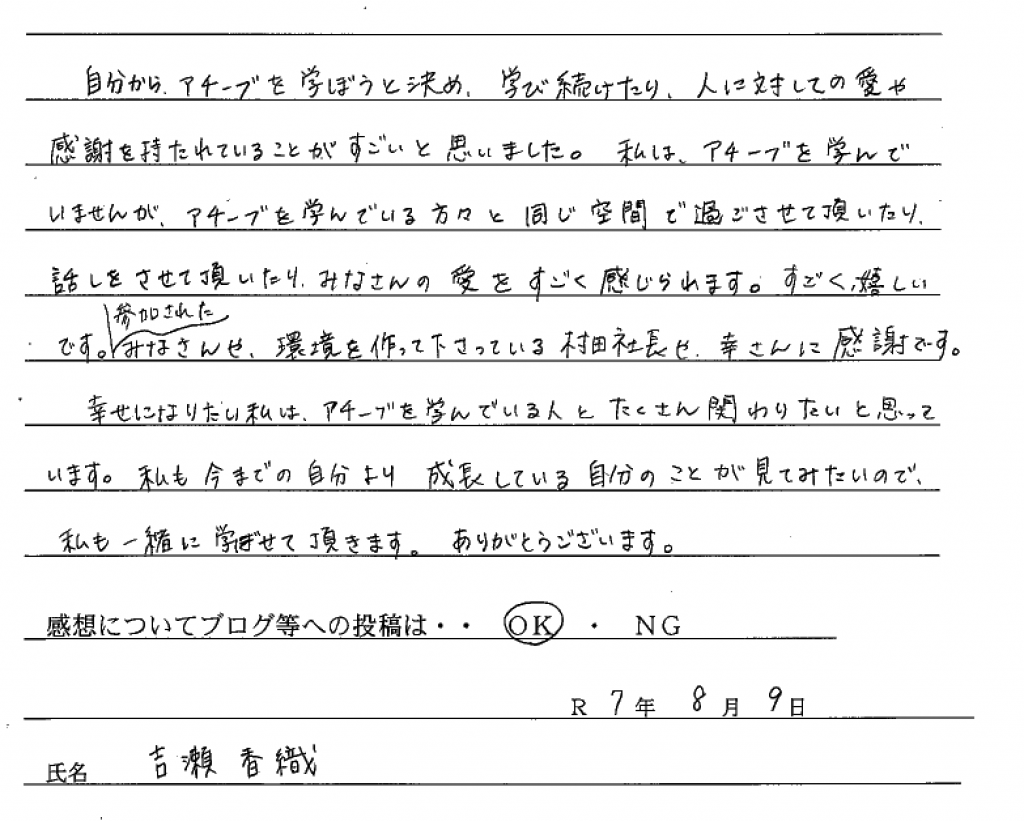 自分から、アチーブを学ぼうと決め、学び続けたり、人に対しての愛や
感謝を持たれていることがすごいと思いました。私は、アチーブを学んで
いませんが、アチーブを学んでいる方々と同じ空間で過ごさせて頂いたり、
話しをさせて頂いたり、みなさんの愛をすごく感じられます。すごく嬉しい
参加された
です。みなさんや、環境を作って下さっている村田社長や、幸さんに感謝です。
幸せになりたい私は、アチーブを学んでいる人とたくさん関わりたいと思って
います。私も今までの自分より成長している自分のことが見てみたいので、
私も一緒に学ばせて頂きます。ありがとうございます。
感想についてブログ等への投稿は・・ OK ・ NG
R 7年 8月 9日
氏名 吉瀬 香織